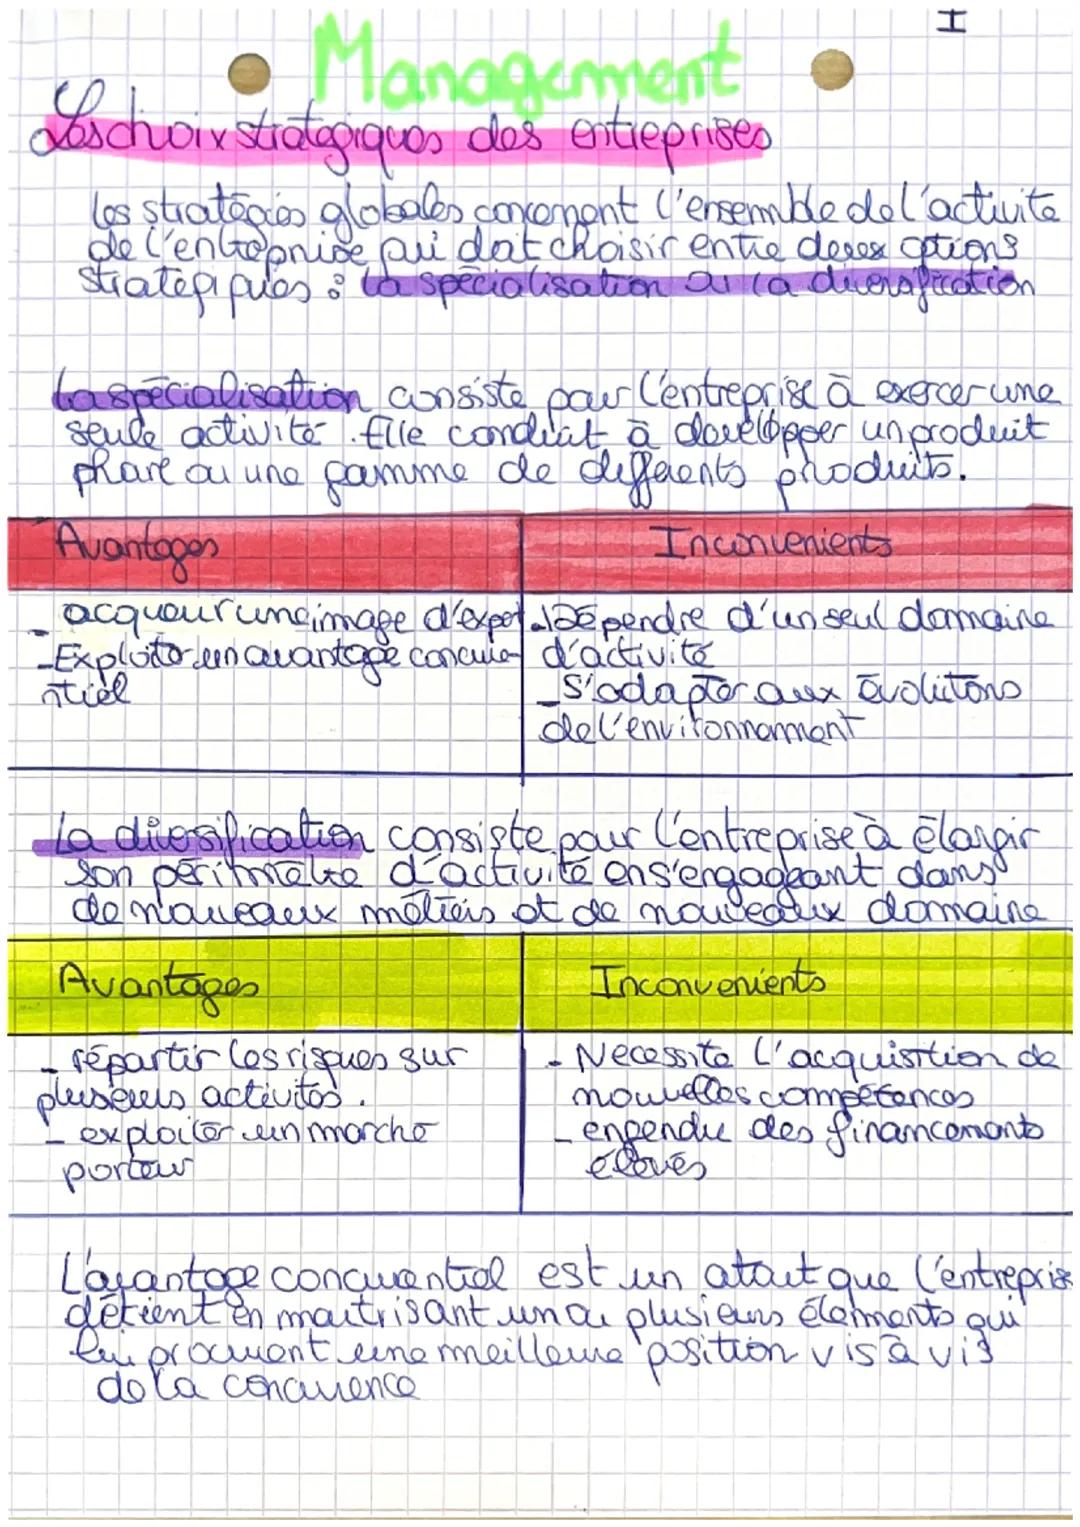 I
Management
Les choix stratégiques des entreprises
Les stratégies globales concernent l'ensemble de l'activité
de l'entreprise qui doit choisir entre deux options
stratégiques : la spécialisation ou la diversification
La spécialisation consiste pour l'entreprise à exercer une
seule activité. Elle conduit à développer un produit
phare ou une gamme de différents produits.
Avantages Inconvenients
- acquerir une image d'expert - Dépendre d'un seul domaine
- Exploiter un avantage concurre- d'activité
ntiel - S'adapter aux évolutions
de l'environnement
La diversification consiste pour l'entreprise à élargir
son périmètre d'activité en s'engageant dans
de nouveaux métiers et de nouveaux domaine
Avantages Inconvenients
- répartir les risques sur - Necessite l'acquisition de
plusieurs activités. nouvelles compétences
- exploiter un marché - engendre des financements
porteur élevés
L'avantage concurentiel est un atout que l'entreprise
détient en maitrisant un ou plusieurs éléments qui
lui procurent une meilleure position vis à vis
de la concurence